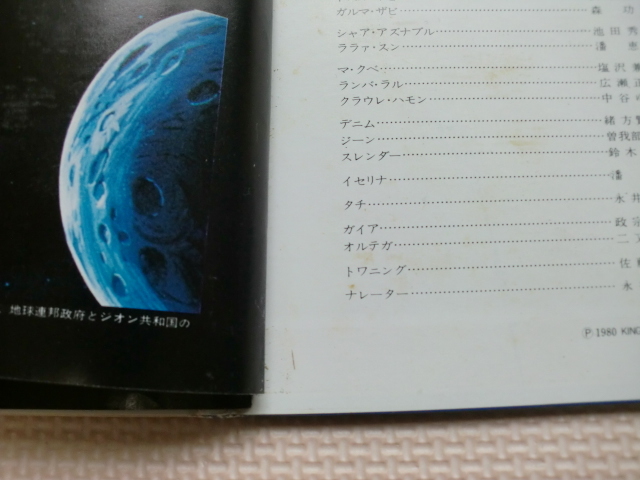 ガルマ・ザビ……森 功
シャア・アズナブル……池田秀
ララァ・スン……潘 恵
マ・クベ……塩沢兼
ランバ・ラル……広瀬正
クラウレ・ハモン……中谷
デニム……緒方賢
ジーン……曽我部
スレンダー……鈴木
イセリナ……潘
タチ……永井
ガイア……政宗
オルテガ……二
トワニング……佐
ナレーター……永
Ⓟ 1980 KING
地球連邦政府とジオン共和国の